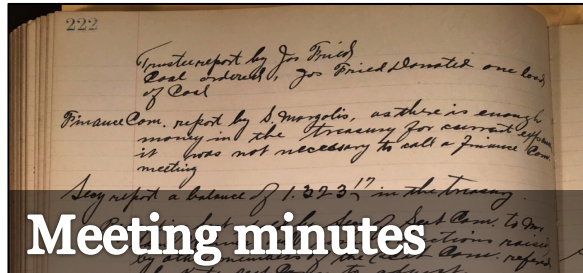 222
Trustee report by Jos Fried
Coal ordered, Jos Fried Donated one load
of Coal
Finance Com. report by S. Margolis, as there is enough
money in the treasury for current expense
it was not necessary to call a Finance Com.
meeting
Secy report a balance of 1.323 17 in the treasury.
Com. to
Meeting minutes
raised
by other members of the Com. refered